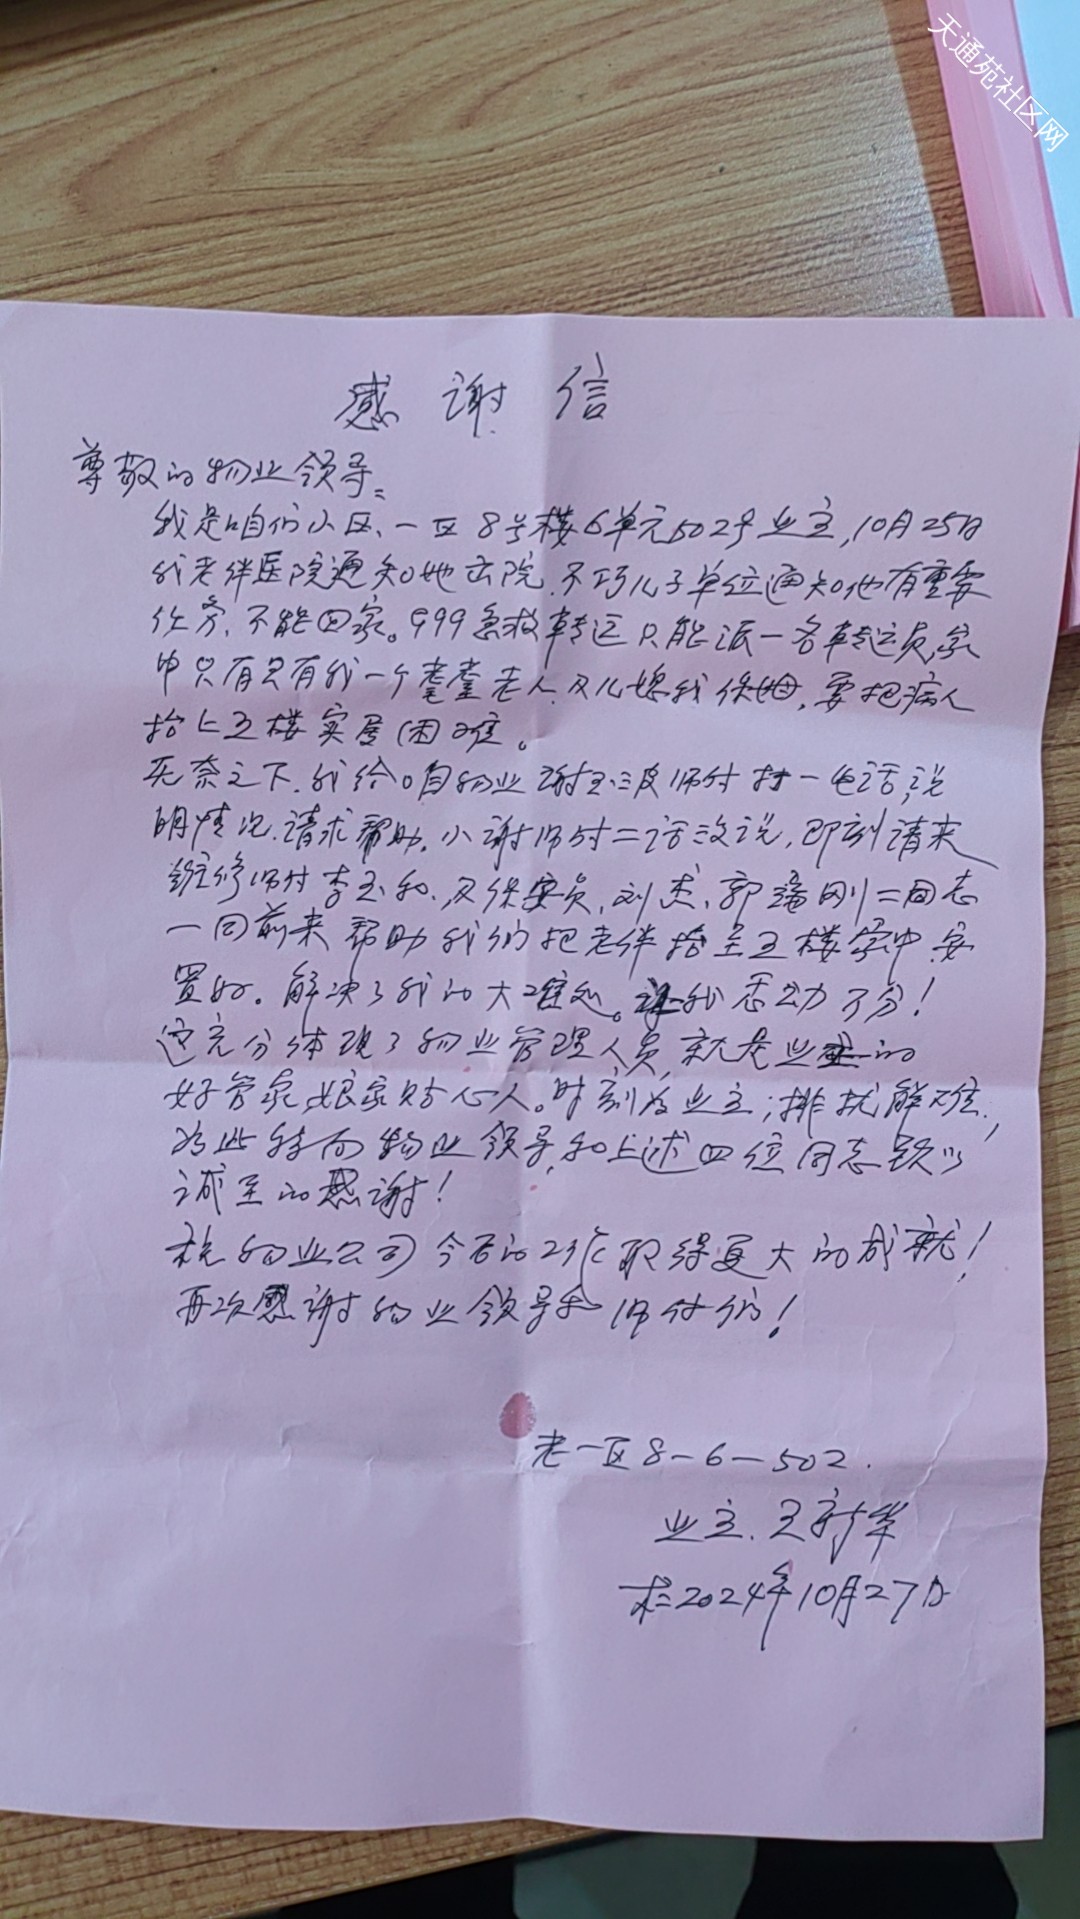 天通苑社区网
感谢信
尊敬的物业领导:
我是咱们小区、一区8号楼6单元502号业主,10月25日
我老伴医院通知她出院,不巧儿子单位通知他有重要
任务,不能回家。999急救转运只能派一名转运员,家
中只有只有我一个耄耋老人及儿媳我保姆,要把病人
抬上五楼实居困难。
无奈之下,我给咱物业谢玉波师付打一电话,说
明情况,请求帮助,小谢师付二话没说,即刻请来
维修师付李玉和,及保安员,刘杰、郭瑞刚二同志
一同前来帮助我们把老伴抬至五楼家中安
置好。解决了我的大难处。让我感动万分!
这充分体现了物业管理人员,就是业主的
好管家,娘家贴心人。时刻为业主;排扰解难,
为此特向物业领导,和上述四位同志致以
诚至的感谢!
祝物业公司今后的工作取得更大的成就!
再次感谢物业领导和师付们!
老一区8-6-502.
业主.王
于2024年10月27日